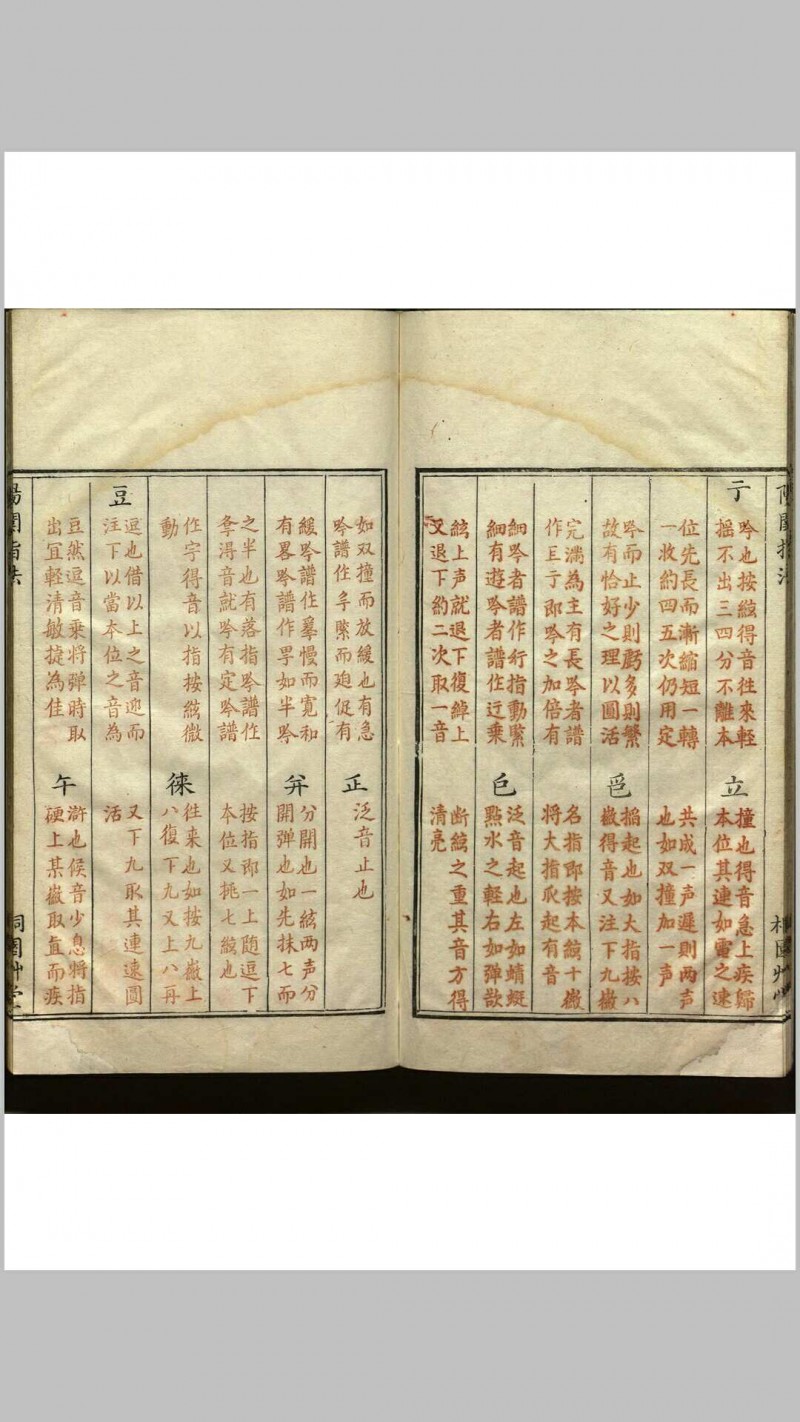 亍
吟也按絃得音往來輕
搖不出三四分不離本
位先長而漸縮短一轉
一收約四五次仍用定
吟而止少則虧多則繁
故有恰好之理以圓活
完滿為主有長吟者譜
作亍即吟之加倍有
細吟者譜作行指動緊
細有遊吟者譜作迂乗
絃上声就退下復綽上
又退下約二次取一音
立
撞也得音急上疾歸
本位其連如電之速
共成一声遲則兩声
也如双撞加一声
搯起也如大指按八
徽得音又注下九徽
名指即按本絃十徽
將大指起有音
泛音起也左如蜻蜓
點水之輕右如弹欲
断絃之重其音方得
清亮
如双撞而放緩也有急
吟譜作緊而廹促有
緩吟譜作慢而寛和
有畧吟譜作如半吟
之半也有落指吟譜作
得音就吟有定吟譜
作㝎得音以指按絃微
動
豆
逗也借以上之音迎而
注下以當本位之音為
豆然逗音乗将弹時取
出宜輕清敏捷為佳
正
泛音止也
分開也一絃兩声分
開弹也如先抹七而
按指即一上随逗下
本位又挑七絃也
徠
往来也如按九徽上
八復下九又上八再
又下九取其連速圓
活
午
滸也候音少息将指
硬上某徽取直而疾
陽關指法
桐園艸堂